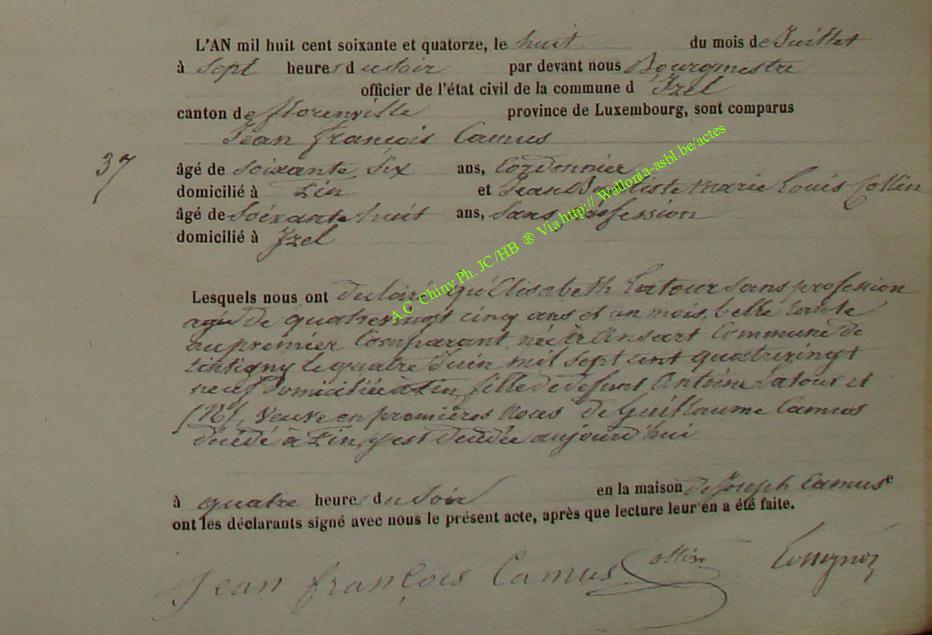 L'AN mil huit cent soixante et quatorze, le huit du mois de Juillet
à sept heures du soir par devant nous Bourgmestre
officier de l'état civil de la commune d'Izel
canton de florenville province de Luxembourg, sont comparus
Jean françois Camus
37
âgé de soixante six ans, Cordonnier
domicilié à Pin et Jean Baptiste Marie Louis Collin
âgé de Soixante huit ans, Sans profession
domicilié à Izel
Lesquels nous ont déclaré qu'Elisabeth Latour sans profession
agée de quatrevingt cinq ans et un mois, belle tante
au premier Comparant née à Ansart Commune de
tintigny le quatre Juin mil sept cent quatrevingt
neuf domiciliée à Pin, fille de defunt Antoine Latour et
(N) Veuve en premières Noces de Guillaume Camus
décédé à Pin, y est décédée aujourd'hui
à quatre heures du Soir en la maison de Joseph Camus e
ont les déclarants signé avec nous le présent acte, après que lecture leur en a été faite.
Jean françois Camus Collin
A.C Chiny Ph. JC/HB ® Via http://Wallonia-asbl.be/actes